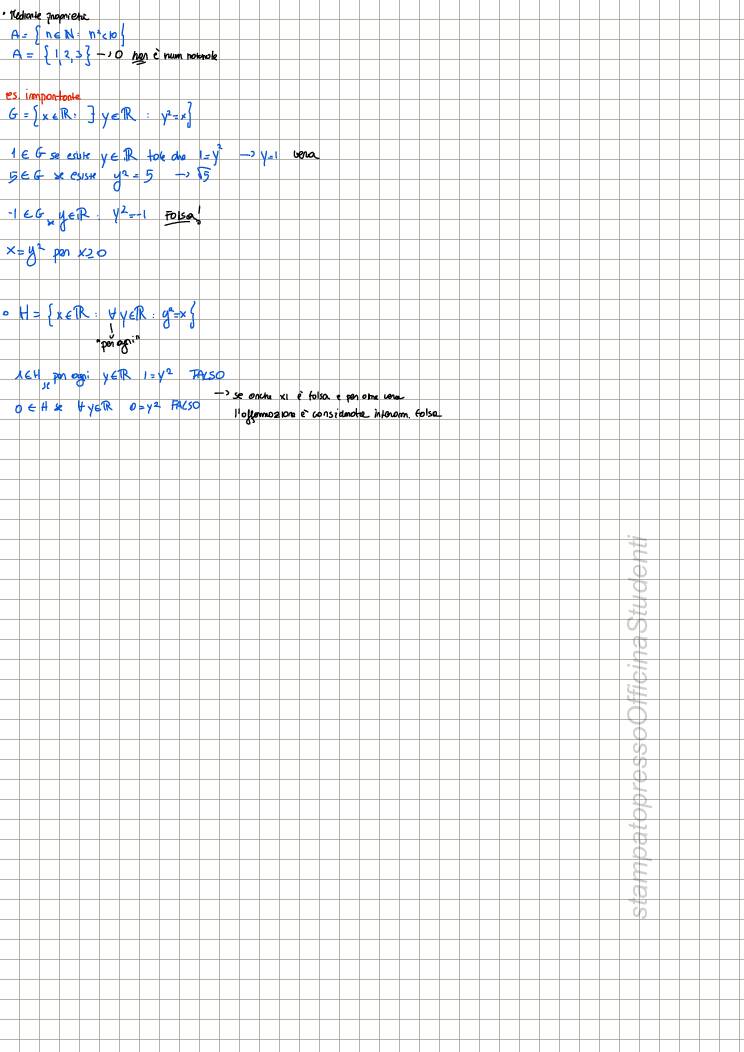 • Mediante proprietà
A = { n ∈ N : n² < 10 }
A = { 1, 2, 3 } → 0 non è num naturale
es. importante
G = { x ∈ ℝ : ∃ y ∈ ℝ : y² = x }
1 ∈ G se esiste y ∈ ℝ tale che 1 = y² → y=1 vera
5 ∈ G se esiste y² = 5 → √5
-1 ∈ G se y ∈ ℝ : y² = -1 Falsa!
x = y² per x ≥ 0
• H = { x ∈ ℝ : ∀ y ∈ ℝ : y² = x }
"per ogni"
1 ∈ H se per ogni y ∈ ℝ 1 = y² FALSO
0 ∈ H se ∀ y ∈ ℝ 0 = y² FALSO → se anche x1 è falsa e per altre vera
l'affermazione è considerata interam. falsa
stampatopressoOfficinaStudenti